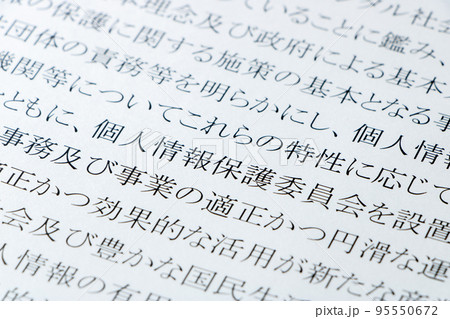 タル社会
本理念及び政府による基本
ていることに鑑み、
の保護に関する施策の基本となる事
団体の責務等を明らかにし、個人情
機関等についてこれらの特性に応じて
ともに、個人情報保護委員会を設置
事務及び事業の適正かつ円滑な運
適正かつ効果的な活用が新たな産
会及び豊かな国民生活
人情報の有用
的
pixta.jp - 95550672